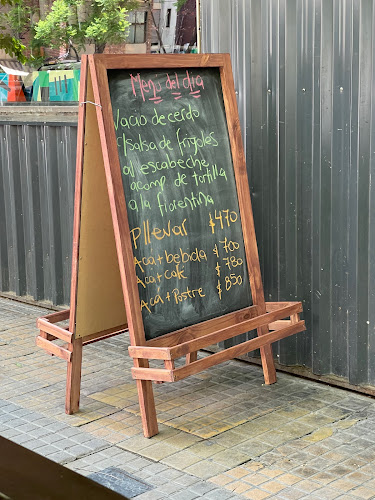 Menú del día
Vacio de cerdo
c/salsa de frijoles
al escabeche
acomp de tortilla
a la florentina
P/llevar $470
Acá + bebida $700
Acá + café $780
Acá + Postre $850